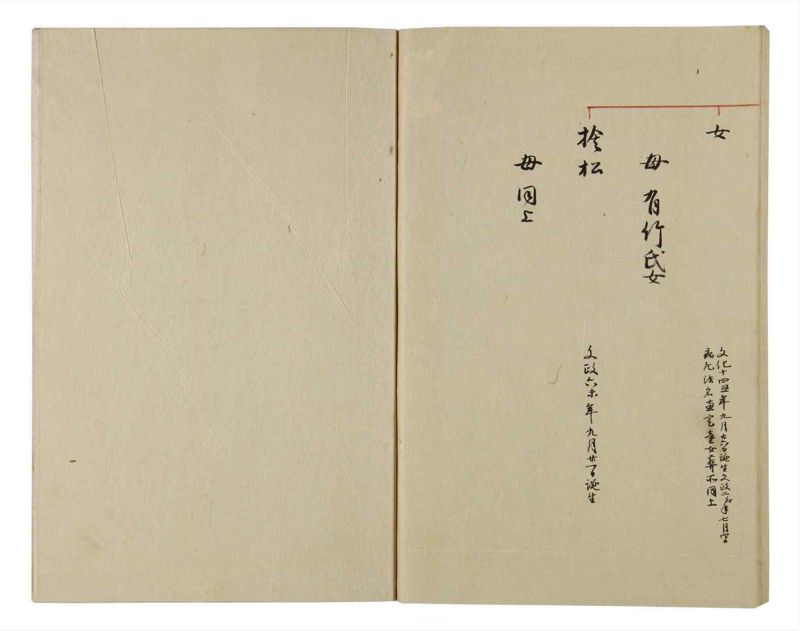 女
母 有竹氏女
文化十四丑年九月廿六日誕生文政二卯年七月
病死法名 童女葬所同上
捨松
母 同上
文政六未年九月廿一日誕生